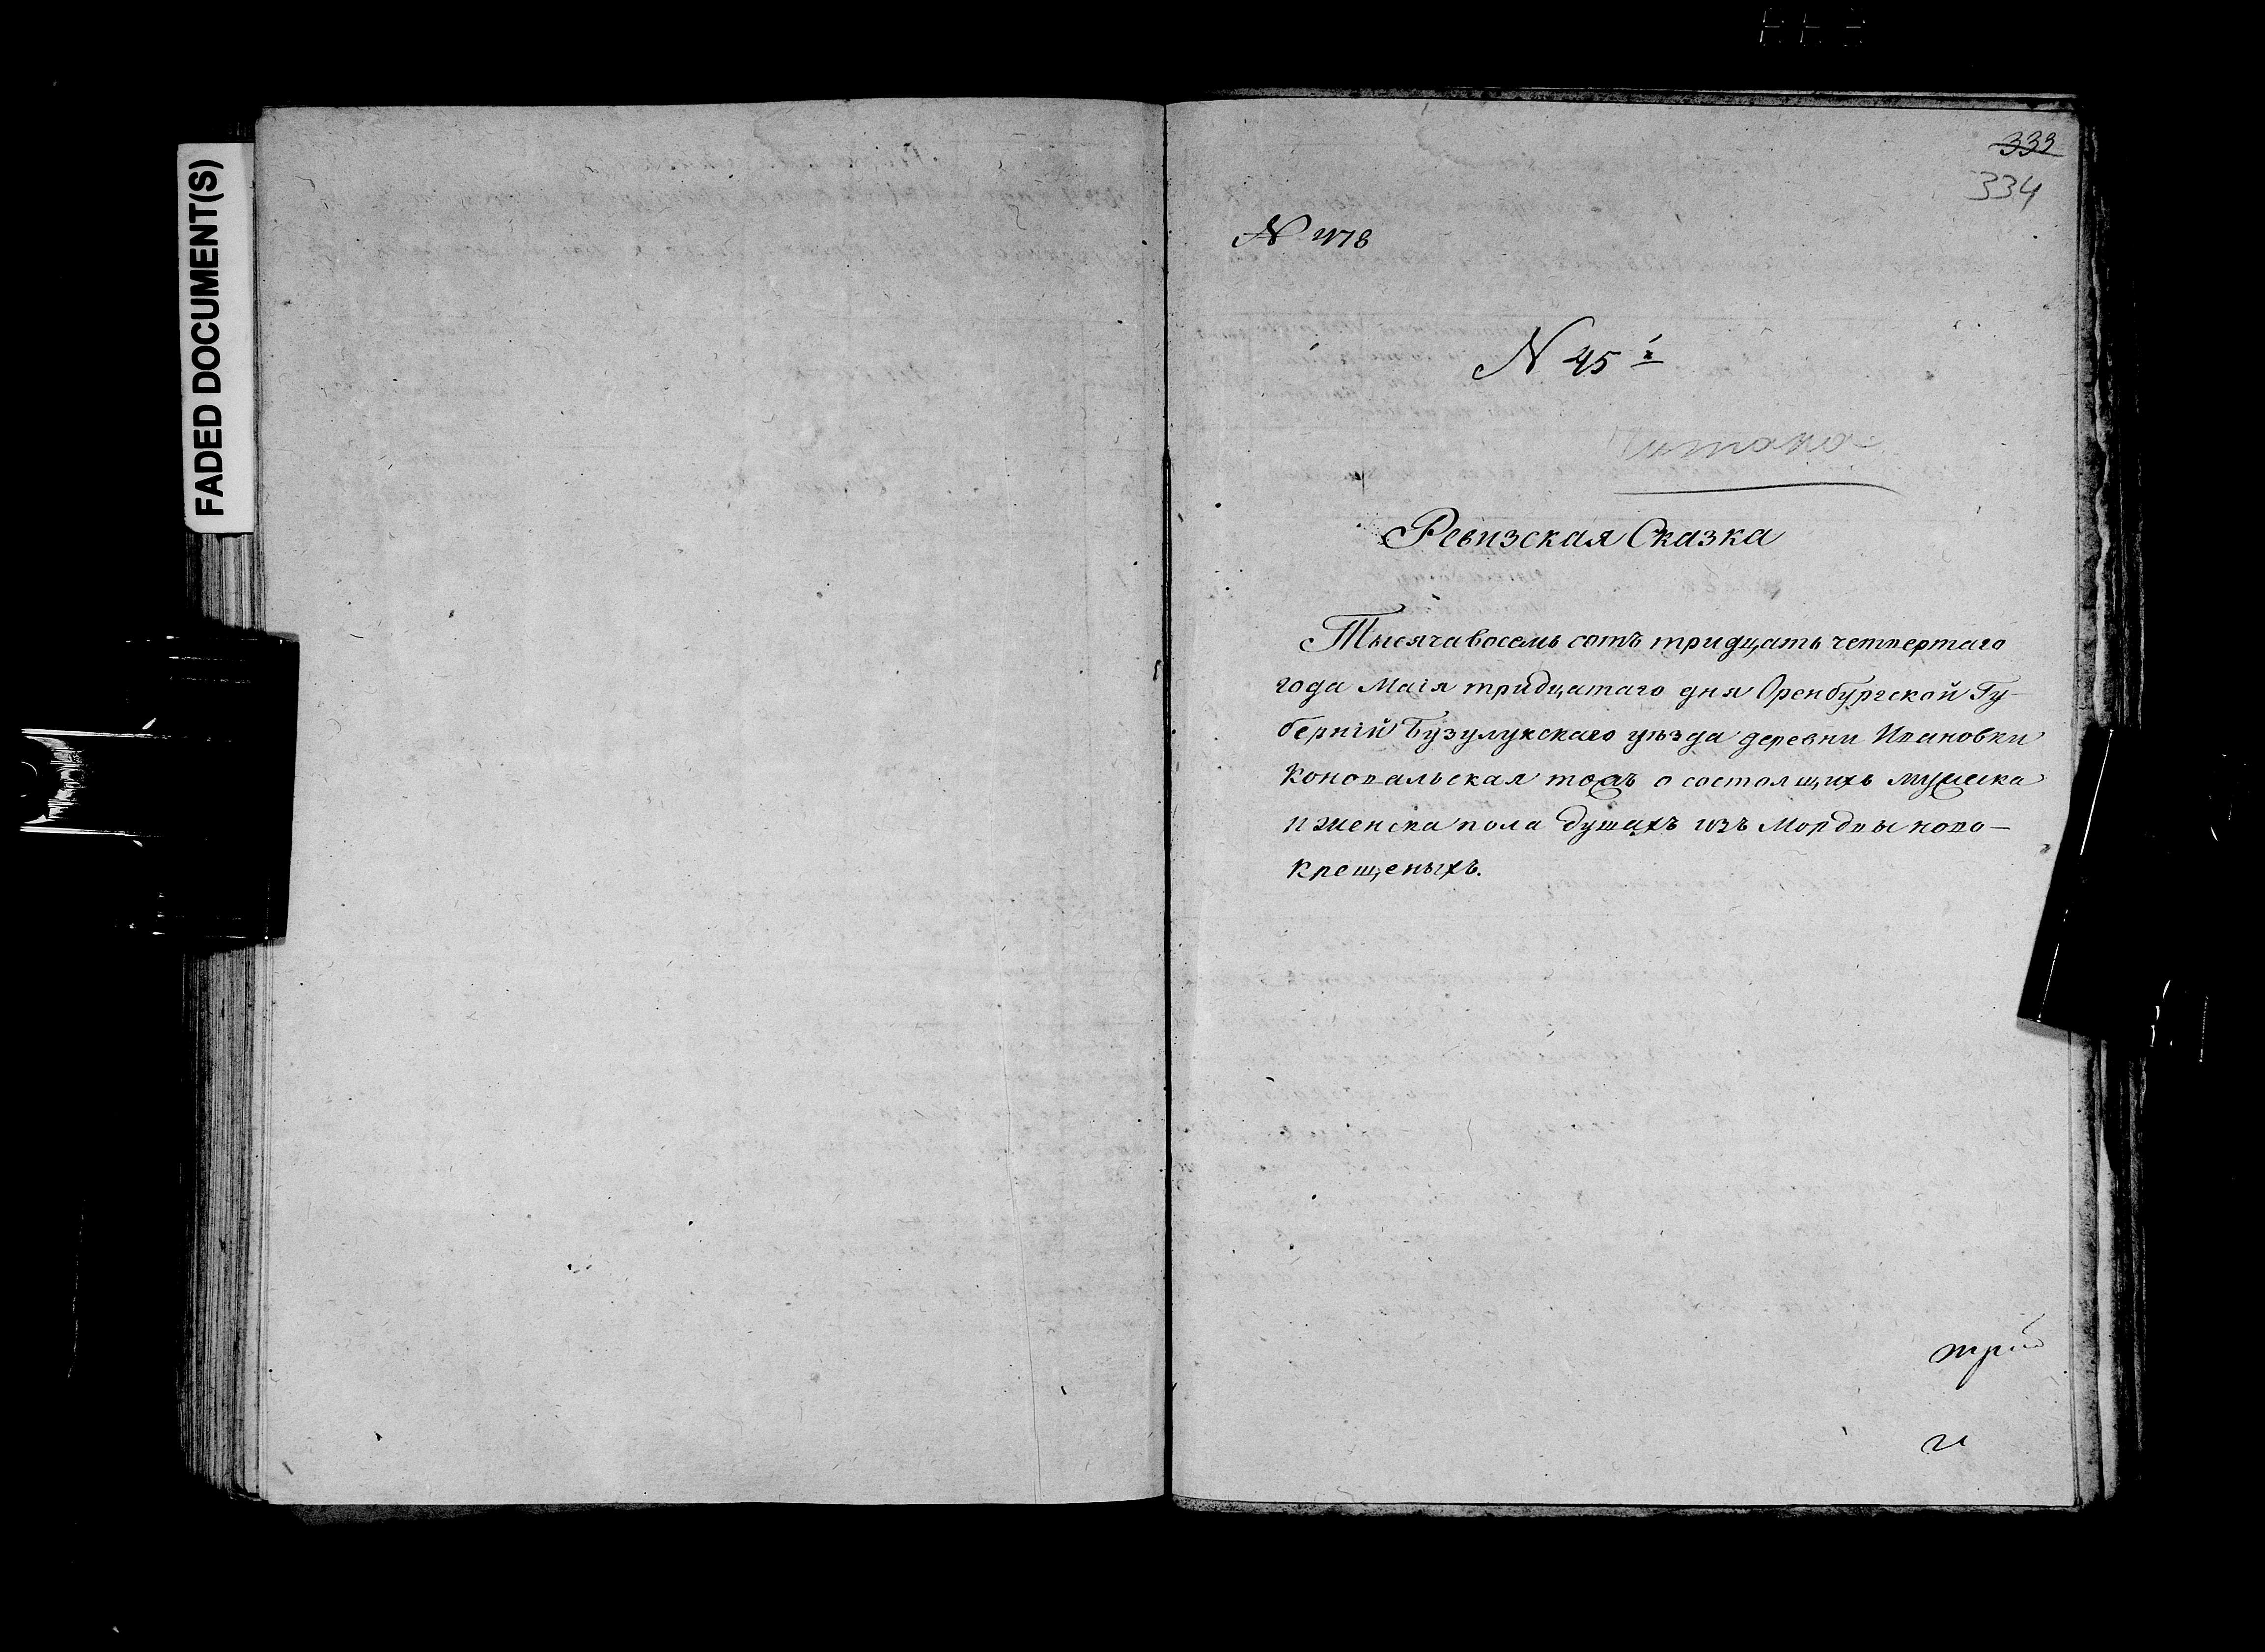 FADED DOCUMENT(S)
333
334
N 478
N 45й
Читана
Ревизская Сказка
Тысяча восемь сотъ тридцать четвертаго
года Маія тридцатаго дня Оренбургской Гу-
берніи Бузулукскаго уѣзда деревни Ивановки
Коновальская тожъ о состоящихъ мужеска
и женска пола душахъ изъ Мордвы ново-
крещеныхъ.